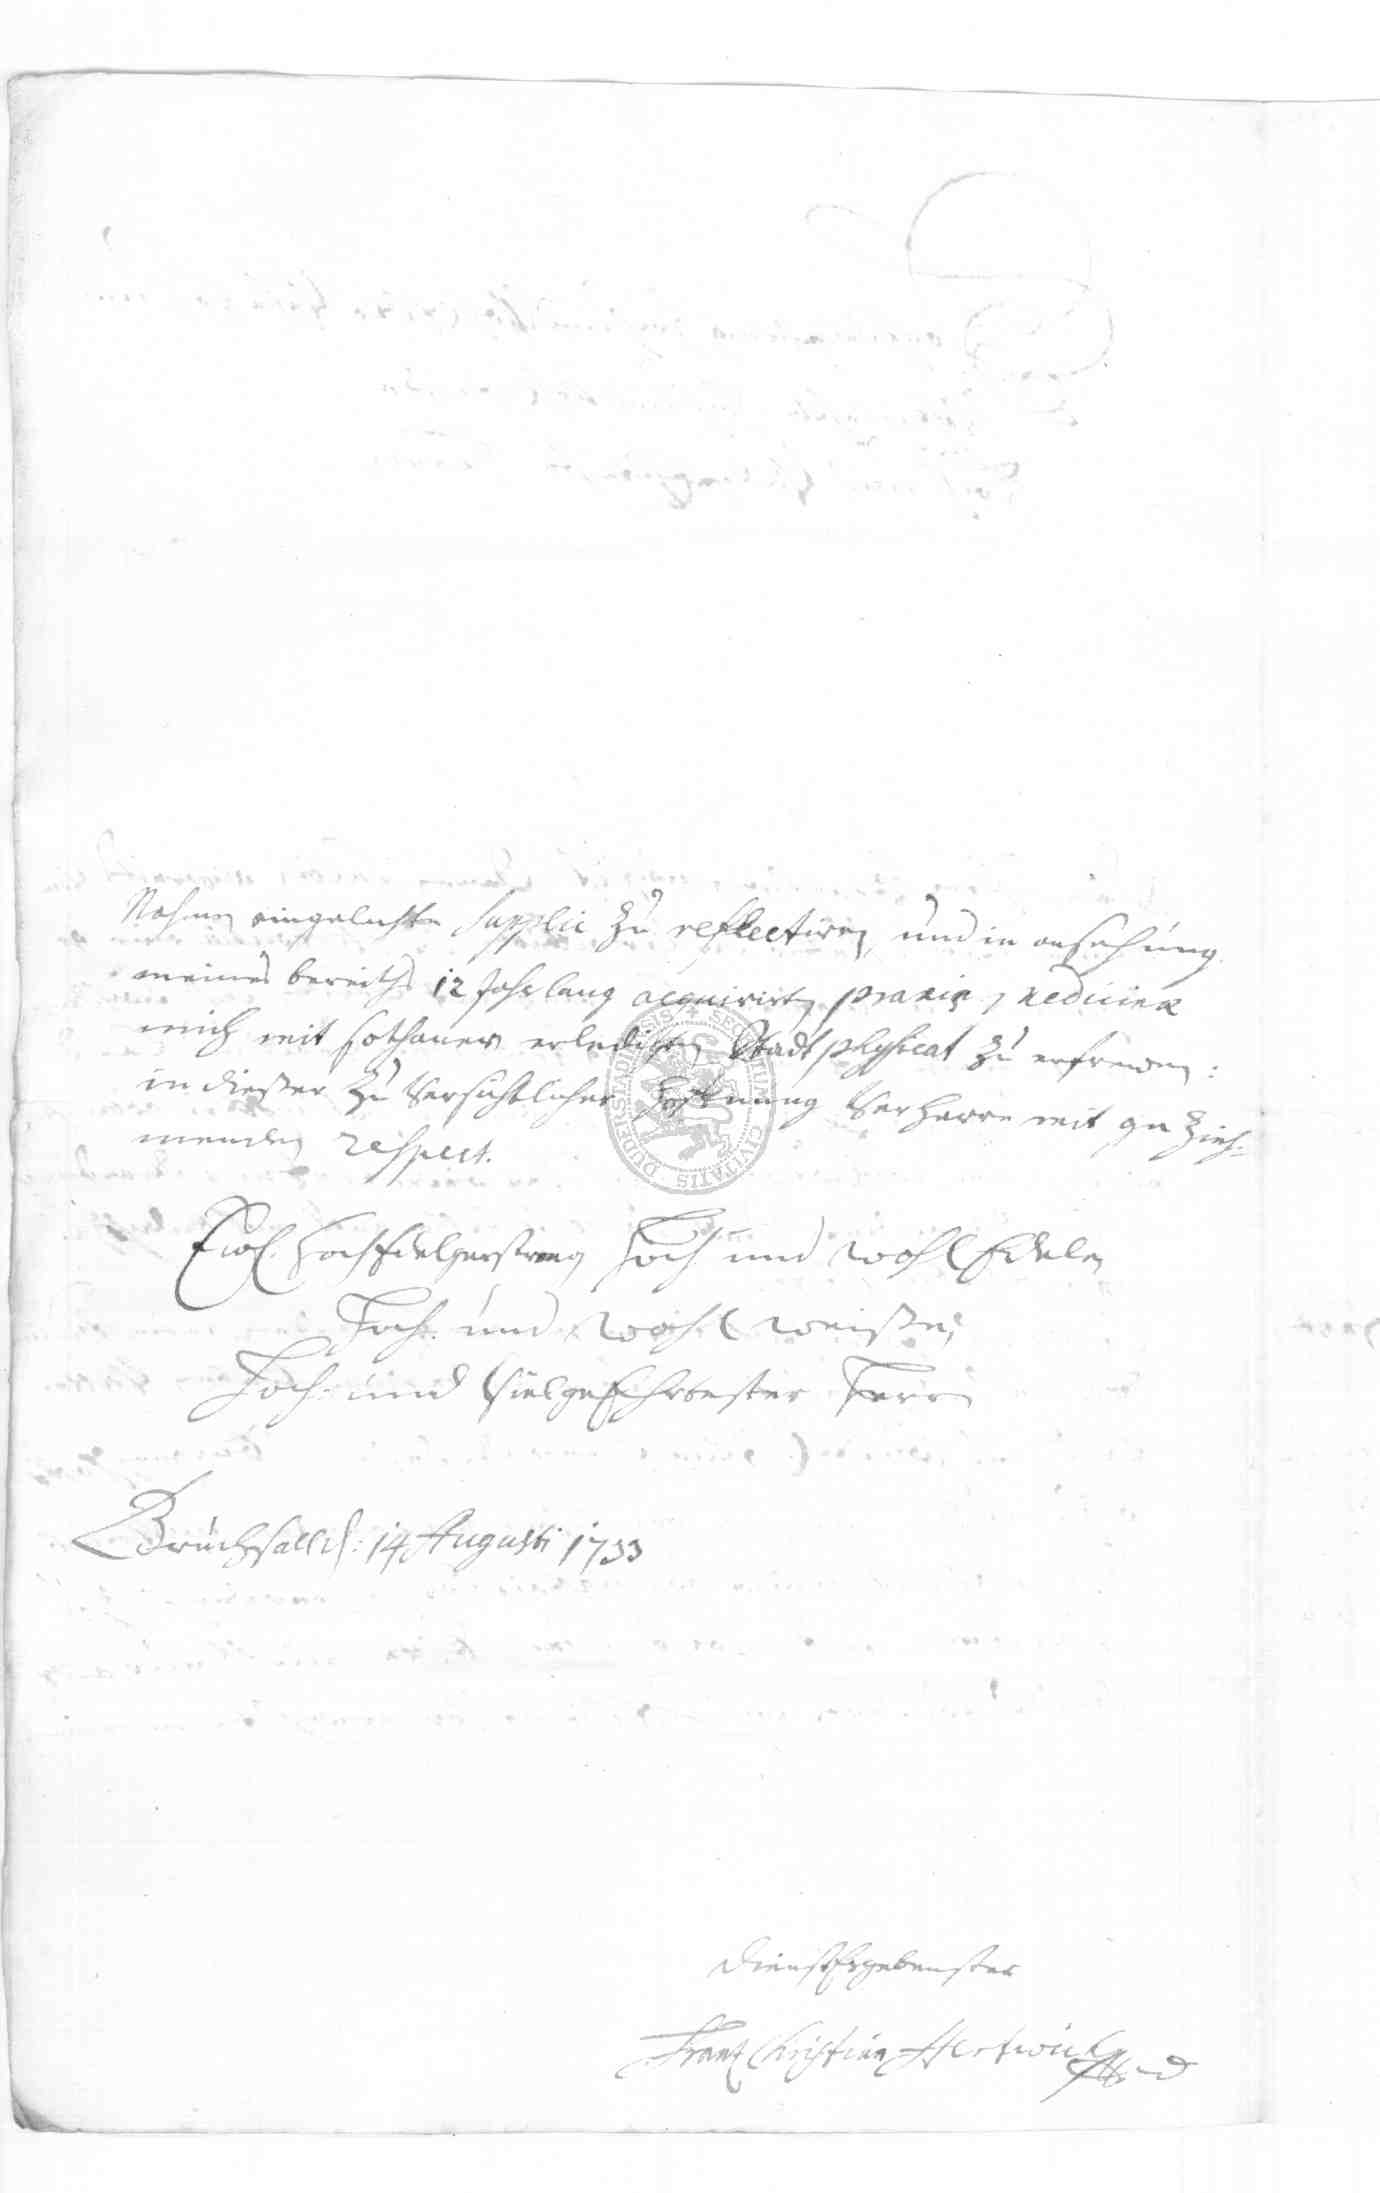 Nahmen eingelichte Supplic zu reflectiren, und in ansehung
meines bereiths 12 Jahr lang acquirirten praxin medicinæ
mich mit sothanen erledigten Stadt physicat zu erfreuen:
in dießer zu versichtlicher Hoffnung verharre mit gezieh-
menden respect.
Ewl. HochEdelgestreng Hoch und WohlEdelen
Hoch und Wohl weißen
Hoch und vielgeEhrtester Herrn
Bruchsall d: 14 Augusti 1733
DienstErgebenster
Frantz Christian Hertwick
SECRETUM CIVITATIS DUDERSTADIENSIS